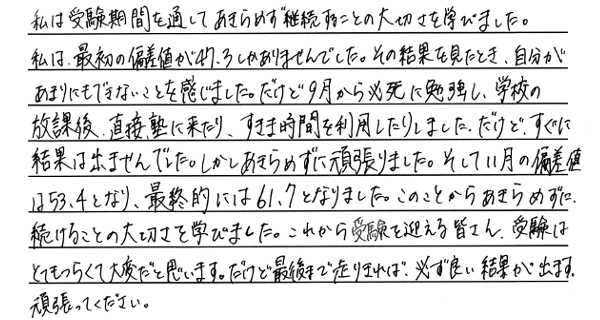 私は受験期間を通してあきらめず継続することの大切さを学びました。
私は、最初の偏差値が47.3しかありませんでした。その結果を見たとき、自分が
あまりにもできないことを感じました。だけど9月から必死に勉強し、学校の
放課後、直接塾に来たり、すきま時間を利用したりしました。だけど、すぐに
結果は出ませんでした。しかしあきらめずに頑張りました。そして11月の偏差値
は53.4となり、最終的には61.7となりました。このことからあきらめずに、
続けることの大切さを学びました。これから受験を迎える皆さん、受験は
とてもつらくて大変だと思います。だけど最後まで走りきれば、必ず良い結果が出ます。
頑張ってください。